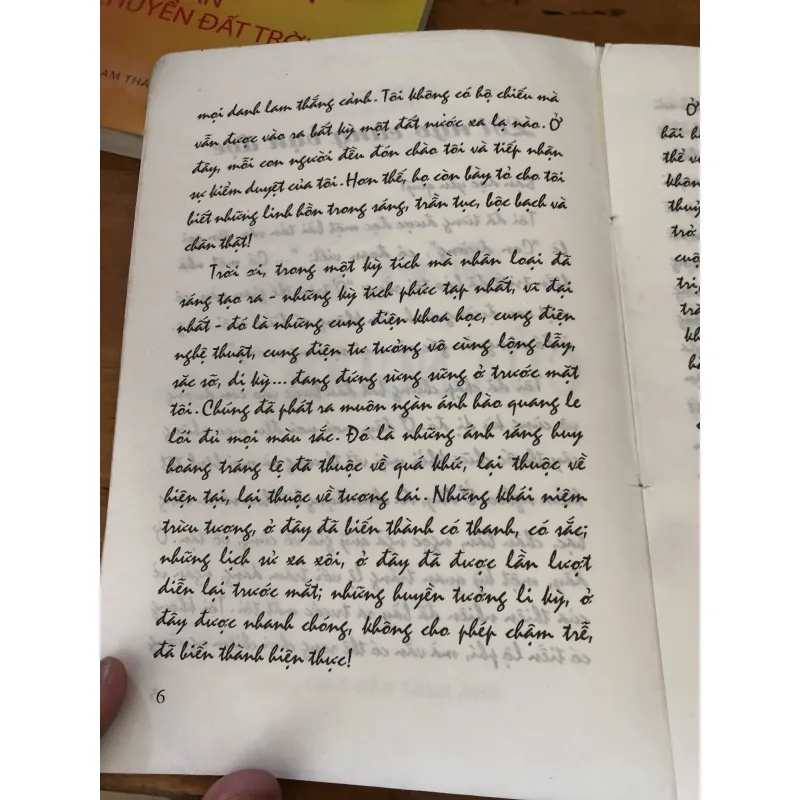 HUYỂN ĐẤT TRỜI
mọi danh lam thắng cảnh. Tôi không có hộ chiếu mà
vẫn được vào ra bất kỳ một đất nước xa lạ nào. Ở
đây, mỗi con người đều đón chào tôi và tiếp nhận
sự kiểm duyệt của tôi. Hơn thế, họ còn bày tỏ cho tôi
biết những linh hồn trong sáng, trần tục, bộc bạch và
chân thật!
Trời ơi, trong một kỳ tích mà nhân loại đã
sáng tạo ra - những kỳ tích phức tạp nhất, vĩ đại
nhất - đó là những cung điện khoa học, cung điện
nghệ thuật, cung điện tư tưởng vô cùng lộng lẫy,
sặc sỡ, dị kỳ... đang đứng sừng sững ở trước mặt
tôi. Chúng đã phát ra muôn ngàn ánh hào quang le
lói đủ mọi màu sắc. Đó là những ánh sáng huy
hoàng tráng lệ đã thuộc về quá khứ, lại thuộc về
hiện tại, lại thuộc về tương lai. Những khái niệm
trừu tượng, ở đây đã biến thành có thanh, có sắc;
những lịch sử xa xôi, ở đây đã được lần lượt
diễn lại trước mắt; những huyền tưởng li kỳ, ở
đây được nhanh chóng, không cho phép chậm trễ,
đã biến thành hiện thực!
6
Ở
hãi
thể
khôn
thuỷ
trở
cuộ
tri,